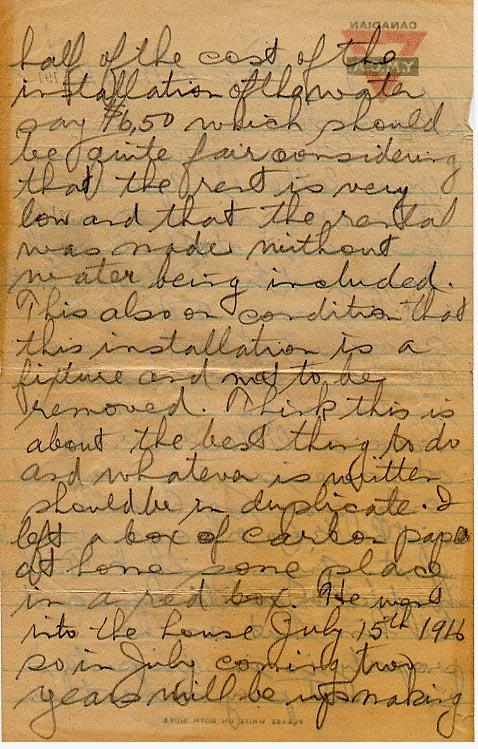 CANADIAN
Y.M.C.A.
half of the cost of the
installation of the water
say $6.50 which should
be quite fair considering
that the rent is very
low and that the rental
was made without
water being included.
This also on condition that
this installation is a
fixture and not to be
removed. Think this is
about the best thing to do
and whatever is written
should be in duplicate. I
left a box of carbon pape
at home some place
in a red box. He went
into the house July 15th 1916
so in July coming two
years will be up making
PLEASE WRITE ON BOTH SIDES